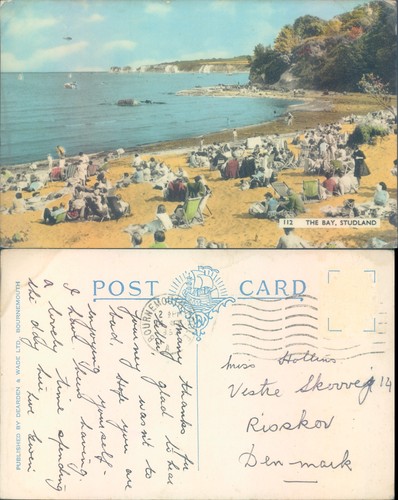 112 THE BAY, STUDLAND
POST CARD
PUBLISHED BY DEARDEN & WADE LTD, BOURNEMOUTH
BOURNEMOUTH
many thanks for
glad to hear
journey wasn't to
bad, hope you are
enjoying yourself -
I think Theirs having
a lovely time spending
the day
Miss Hollins
Vestre Skovvej 14
Risskov
Denmark